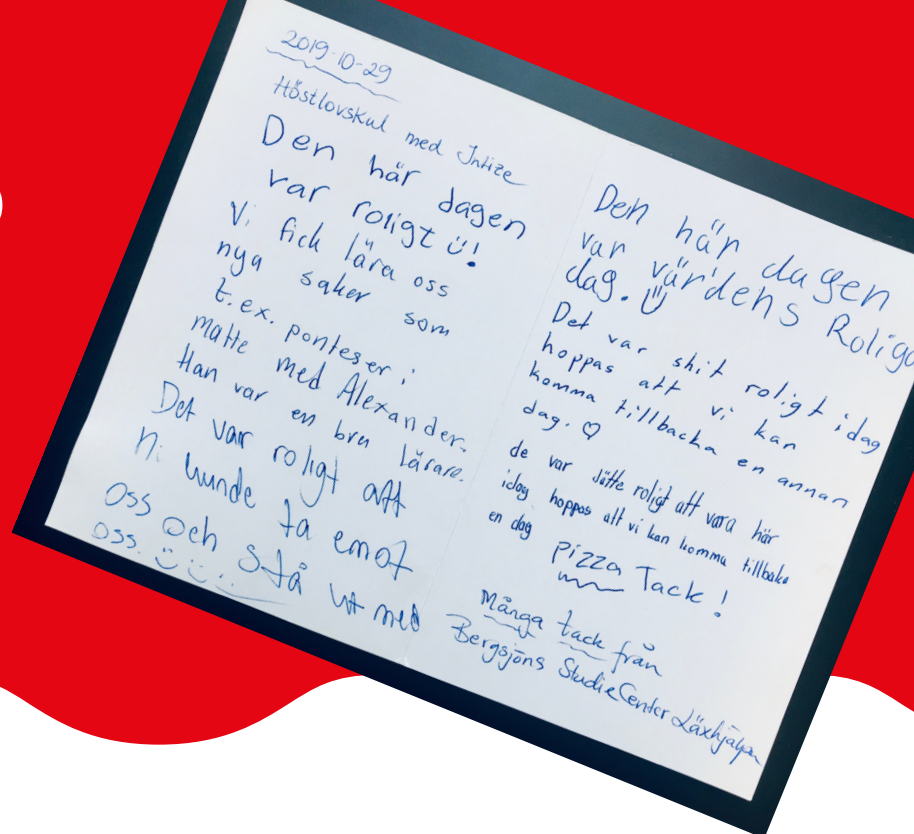 2019-10-29
Höstlovskul med Intize
Den här dagen
var roligt ü!
Vi fick lära oss
nya saker som
t.ex. ponteser i
matte med Alexander.
Han var en bra lärare.
Det var roligt att
Ni kunde ta emot
oss och stå ut med
oss.
Den här dagen
var värdens Roliga
dag.
Det var shit roligt idag
hoppas att vi kan
komma tillbacka en annan
dag. ♡
de var jätte roligt att vara här
idag hoppas att vi kan komma tillbaka
en dag
pizza Tack!
Många tack från
Bergsjöns StudieCenter Läxhjälpen